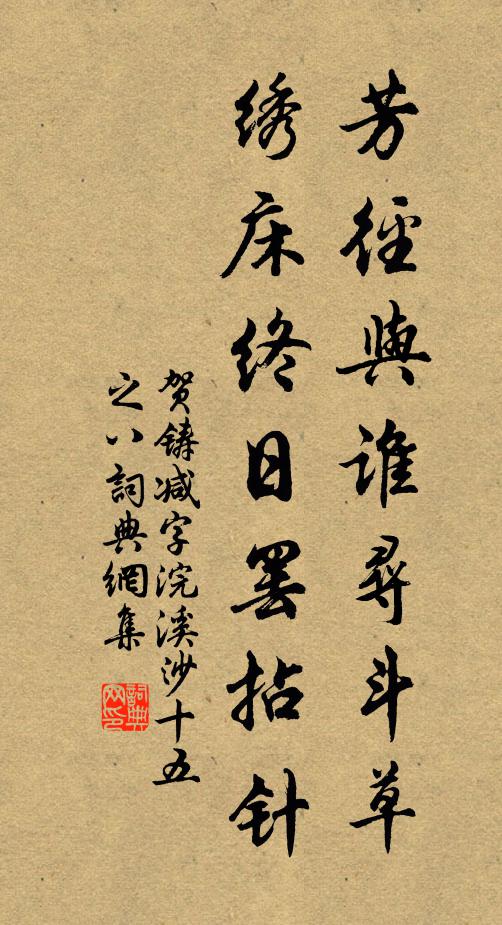 芳径與谁尋斗草
绣床终日罢拈针
贺铸减字浣溪沙十五
之八詞典網集
詞典网印